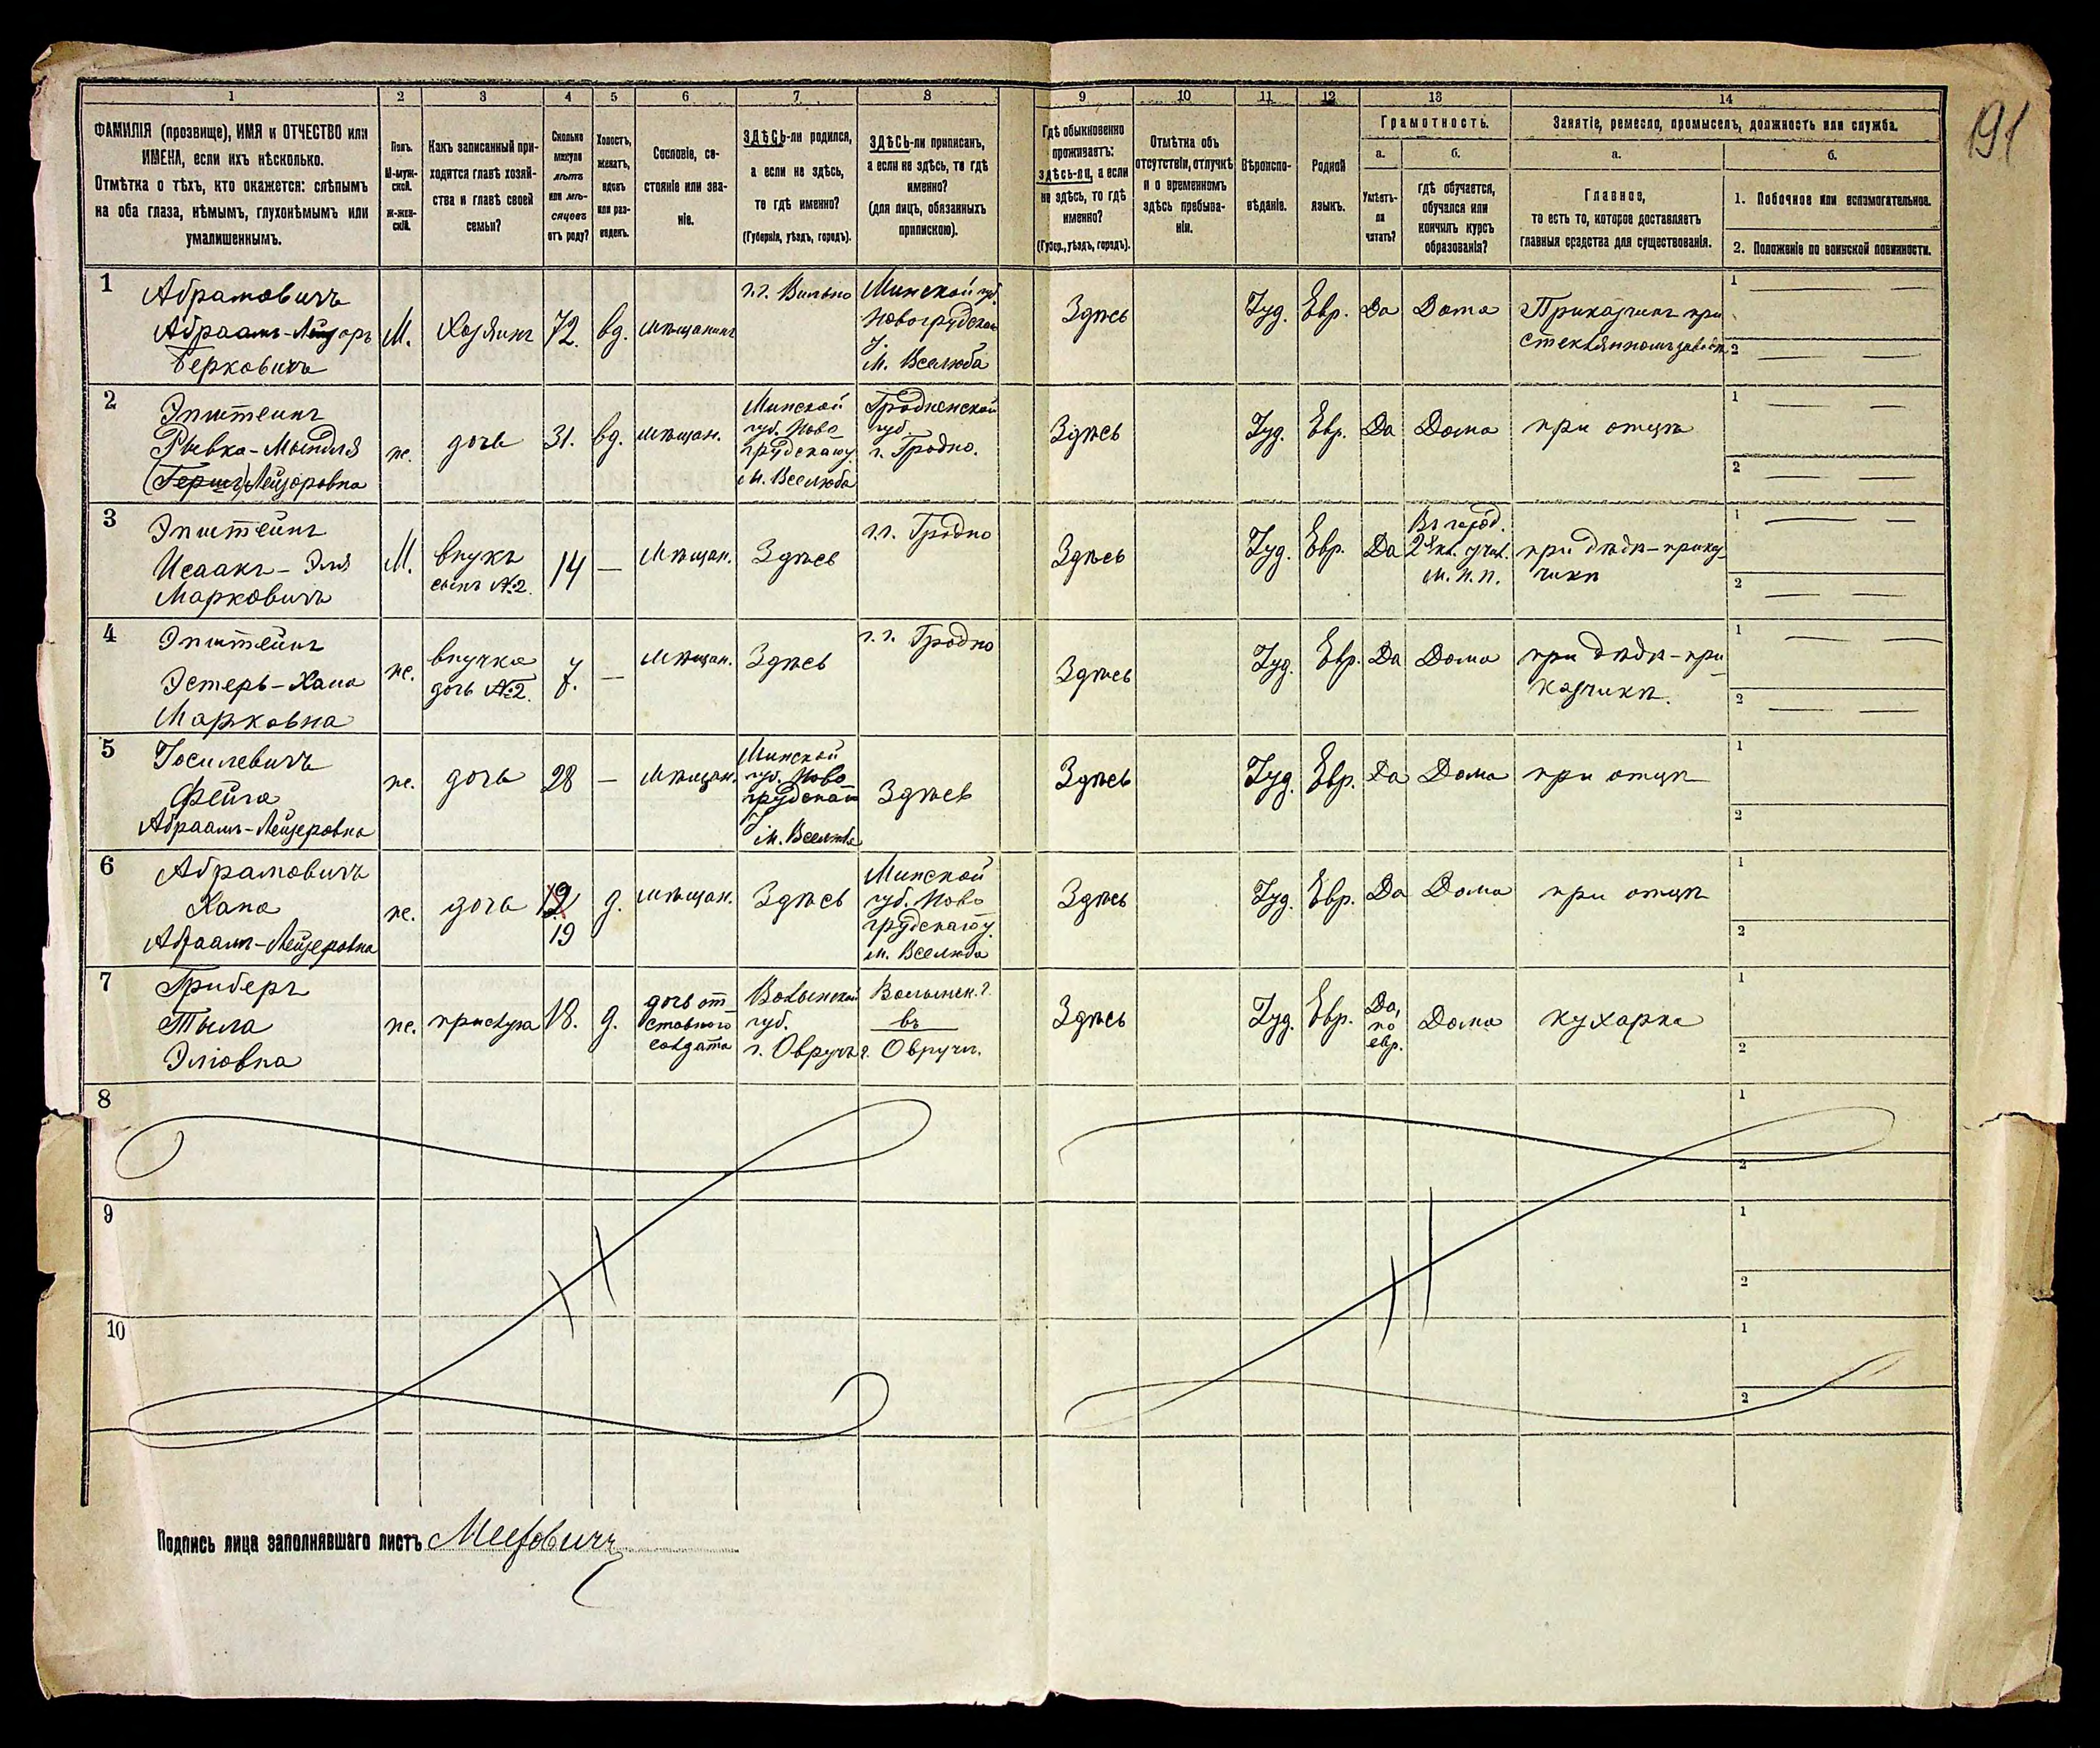 191
1 2 3 4 5 6 7 8 9 10 11 12 13 14
ФАМИЛІЯ (прозвище), ИМЯ и ОТЧЕСТВО или
ИМЕНА, если ихъ нѣсколько.
Отмѣтка о тѣхъ, кто окажется: слѣпымъ
на оба глаза, нѣмымъ, глухонѣмымъ или
умалишеннымъ.
Полъ.
М-муж-
ской.
Ж-жен-
скій.
Какъ записанный при-
ходится главѣ хозяй-
ства и главѣ своей
семьи?
Сколько
минуло
лѣтъ
или мѣ-
сяцевъ
отъ роду?
Холостъ,
женатъ,
вдовъ
или раз-
веденъ.
Сословіе, со-
стояніе или зва-
ніе.
ЗДѢСЬ-ли родился,
а если не здѣсь,
то гдѣ именно?
(Губернія, уѣздъ, городъ).
ЗДѢСЬ-ли приписанъ,
а если не здѣсь, то гдѣ
именно?
(для лицъ, обязанныхъ
припискою).
Гдѣ обыкновенно
проживаетъ:
здѣсь-ли, а если
не здѣсь, то гдѣ
именно?
(Губер., уѣздъ, городъ).
Отмѣтка объ
отсутствіи, отлучкѣ
и о временномъ
здѣсь пребыва-
ніи.
Вѣроиспо-
вѣданіе.
Родной
языкъ.
Грамотность.
а. б.
Умѣетъ-
ли
читать?
гдѣ обучается,
обучался или
кончилъ курсъ
образованія?
Занятіе, ремесло, промыселъ, должность или служба.
а. б.
Главное,
то есть то, которое доставляетъ
главныя средства для существованія.
1. Побочное или вспомогательное.
2. Положеніе по воинской повинности.
1
Абрамовичъ
Абраамъ-Лейзоръ
Берковичъ
М.
Хозяинъ
72.
вд.
мѣщанинъ
г. г. Вильно
Минской губ.
Новогрудскаго
у.
м. Вселюба
Здѣсь
Іуд.
Евр.
Да
Дома
Приказчикъ при
стеклянномъ заводѣ
1
2
2
Эпштеинъ
Рывка-Мындля
(Гершъ) Лейзоровна
ж.
дочь
31.
вд.
мѣщан.
Минской
губ. Ново-
грудскаго у.
м. Вселюба
Гродненской
губ.
г. Гродно.
Здѣсь
Іуд.
Евр.
Да
Дома
при отцѣ
1
2
3
Эпштейнъ
Исаакъ-Эля
Марковичъ
М.
внукъ
сынъ №2.
14
—
Мѣщан.
Здѣсь
г. г. Гродно
Здѣсь
Іуд.
Евр.
Да
Въ город.
2хкл. учил.
м. н. п.
при дѣдѣ-прика
чикѣ
1
2
4
Эпштейнъ
Эстеръ-Хана
Марковна
ж.
внучка
дочь №2.
7.
—
Мѣщан.
Здѣсь
г. г. Гродно
Здѣсь
Іуд.
Евр.
Да
Дома
при дѣдѣ-при-
казчикѣ.
1
2
5
Іосилевичъ
Фейга
Абраамъ-Лейзеровна
ж.
дочь
28
—
Мѣщан.
Минской
губ. Ново
грудскаго
у.
м. Вселюба
Здѣсь
Здѣсь
Іуд.
Евр.
Да
Дома
при отцѣ
1
2
6
Абрамовичъ
Хана
Абраамъ-Лейзеровна
ж.
дочь
19
д.
мѣщан.
Здѣсь
Минской
губ. Ново
грудскаго у.
м. Вселюба
Здѣсь
Іуд.
Евр.
Да
Дома
при отцѣ
1
2
7
Гриберъ
Тыла
Эліовна
ж.
прислуга
18.
д.
дочь от
ставного
солдата
Волынской
губ.
г. Овручъ
Волынск. г.
въ
г. Овручѣ.
Здѣсь
Іуд.
Евр.
Да,
по
евр.
Дома
кухарка
1
2
8
1
2
9
1
2
10
1
2
Подпись лица заполнявшаго листъ